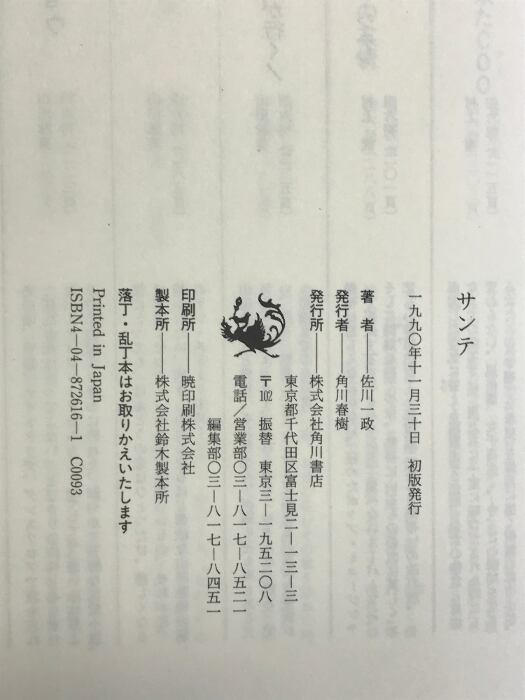 サンテ
一九九〇年十一月三十日　初版発行
著　者──佐川一政
発行者──角川春樹
発行所──株式会社角川書店
東京都千代田区富士見二―一三―三
〒102　振替　東京三―一九五二〇八
電話／営業部〇三―八一七―八五二一
編集部〇三―八一七―八四五一
印刷所──暁印刷株式会社
製本所──株式会社鈴木製本所
落丁・乱丁本はお取りかえいたします
Printed in Japan
ISBN4―04―872616―1　C0093